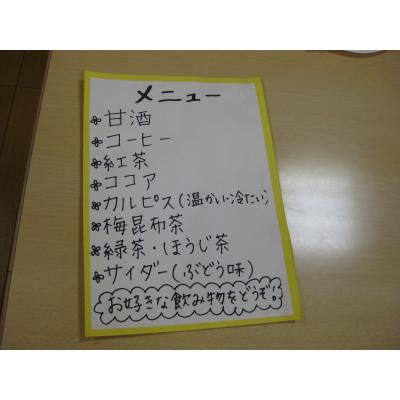 メニュー
甘酒
コーヒー
紅茶
ココア
カルピス(温かい・冷たい)
梅昆布茶
緑茶・ほうじ茶
サイダー(ぶどう味)
お好きな飲み物をどうぞ!